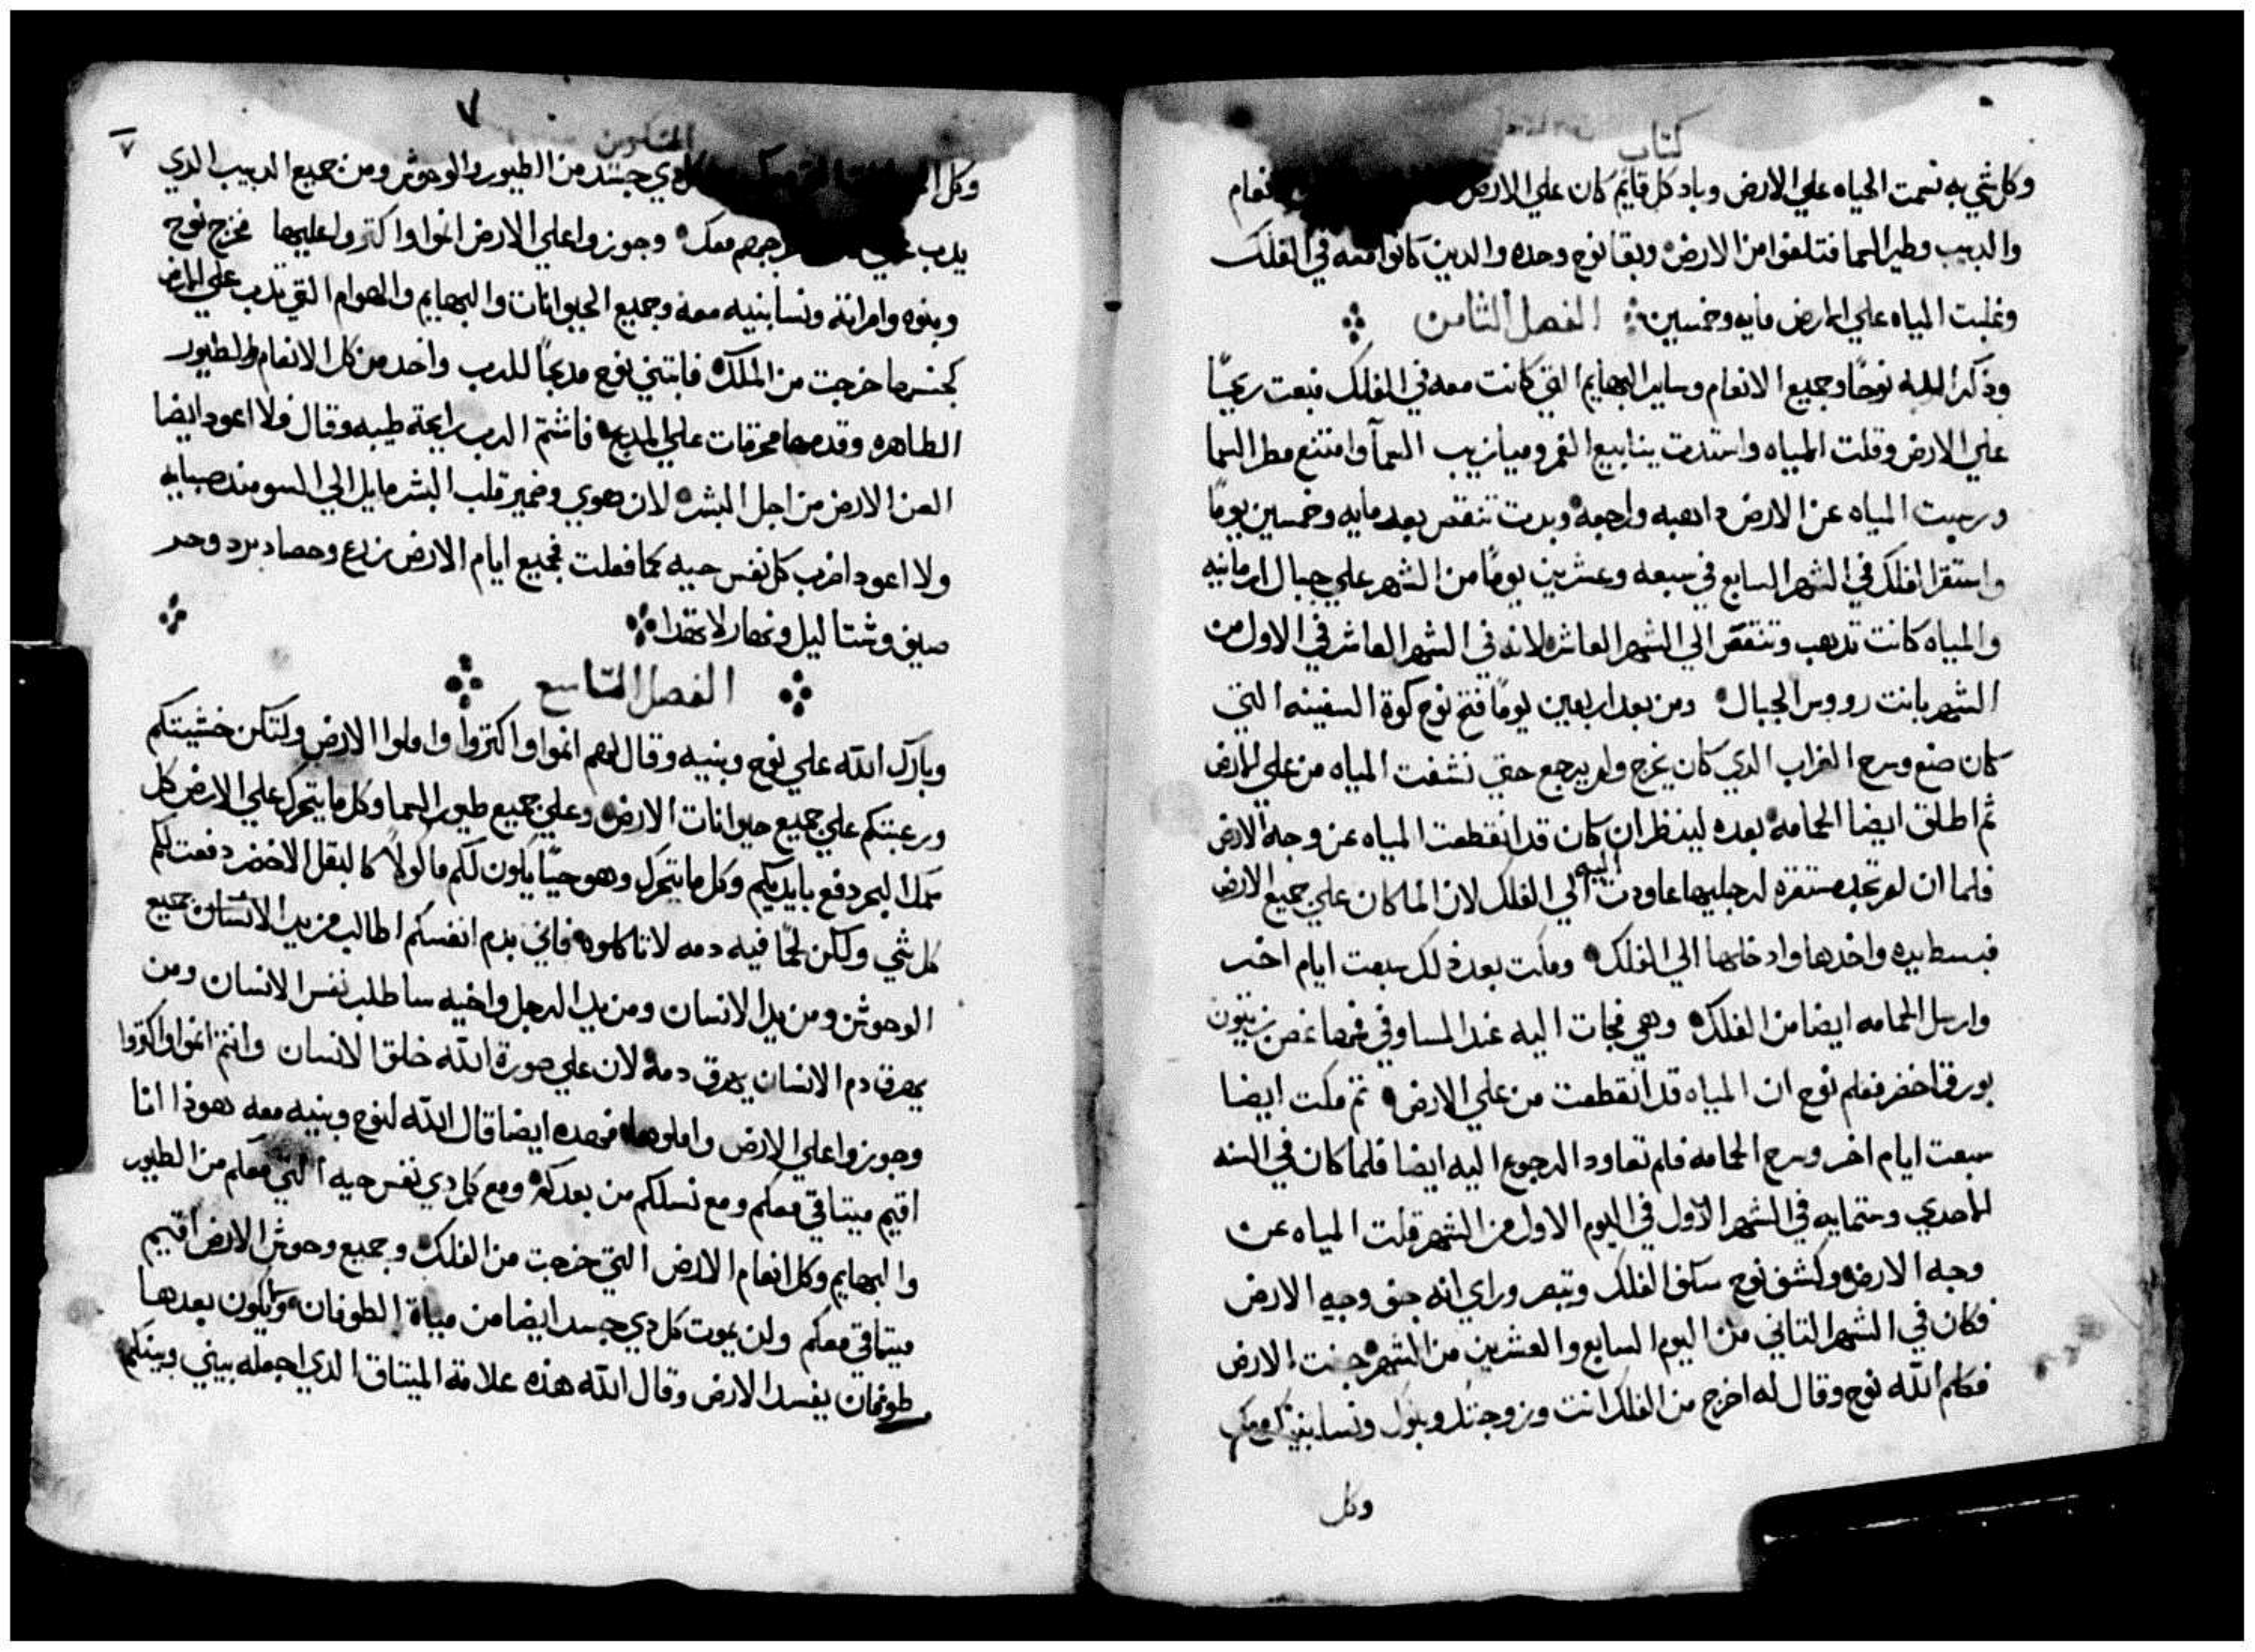 كتاب
وكل شي به نسمت الحياه علي الارض وباد كل قايم كان علي الارض
والدبيب وطير السما فتلفوا من الارض وبقا نوح وحده والدين كانوا معه في الفلك
وغلبت المياه علي الارض مايه وخمسين الفصل الثامن
ودكر الله نوحًا وجميع الانعام وساير البهايم التي كانت معه في الفلك فبعت ريحًا
علي الارض وقلت المياه واستدت ينابيع الغمر وميازيب السمآ وامتنع مطر السما
ورجعت المياه عن الارض داهبه وراجعه وبدت تنقص بعد مايه وخمسين يومًا
واستقر الفلك في الشهر السابع في سبعه وعشرين يومًا من الشهر علي جبال ارمانيه
والمياه كانت تدهب وتنقص الي الشهر العاشر لانه في الشهر العاشر في الاول من
الشهر بانت رووس الجبال ومن بعد اربعين يومًا فتح نوح كوة السفينه التي
كان صنع وسرح الغراب الدي كان يخرج ولم يرجع حتي نشفت المياه من علي الارض
ثم اطلق ايضا الحمامه بعده لينظر ان كان قد انقطعت المياه عن وجه الارض
فلما ان لم تجد مستقره لرجليها عاودت اليه الي الفلك لان الما كان علي جميع الارض
فبسط يده واخدها وادخلها الي الفلك ومكت بعد ذلك سبعت ايام اخر
وارسل الحمامه ايضا من الفلك وهي فجات اليه عند المسا وفي فمها غصن زيتون
بورق اخضر فعلم نوح ان المياه قد انقطعت من علي الارض تم مكت ايضا
سبعت ايام اخر وسرح الحمامه فلم تعاود الرجوع اليه ايضا فلما كان في السنه
الاحدي وستمايه في الشهر الاول في اليوم الاول من الشهر قلت المياه عن
وجه الارض وكشف نوح سقف الفلك وتبصر وراي انه جف وجه الارض
فكان في الشهر التاني من اليوم السابع والعشرين من الشهر جفت الارض
فكلم الله نوح وقال له اخرج من الفلك انت وزوجتك وبنوك ونسا بنيك معك
وكل
٧
٧
دي جسد من الطيور والوحوش ومن جميع الدبيب الدي
يدب معك وجوزوا علي الارض انموا واكتروا عليها فخرج نوح
وبنوه وامراته ونسا بنيه معه وجميع الحيوانات والبهايم والهوام التي تدب علي الارض
كجنسها خرجت من الفلك فابتني نوح مدبحًا للرب واخد من كل الانعام والطيور
الطاهره وقدمها محرقات علي المدبح فاشتم الرب رايحة طيبه وقال فلا اعود ايضا
العن الارض من اجل البشر لان هوي وضمير قلب البشر مايل الي السو مند صبايه
ولا اعود اضرب كل نفس حيه كما فعلت فجميع ايام الارض زرع وحصاد برد وحر
صيف وشتا ليل ونهار لا تهدا
الفصل التاسع
وبارك الله علي نوح وبنيه وقال لهم انموا واكتروا واملوا الارض ولتكن خشيتكم
ورعبتكم علي جميع حيوانات الارض وعلي جميع طيور السما وكل ما يتحرك علي الارض كل
سمك البحر دفع بايديكم وكل ما يتحرك وهو حيًا يكون لكم ماكولاً كالبقل الاخضر دفعت لكم
كل شي ولكن لحمًا فيه دمه لا تاكلوه فاني بدم انفسكم اطالب من يد الانسان جميع
الوحوش ومن يد الانسان ومن يد الرجل واخيه ساطلب نفس الانسان ومن
يهرق دم الانسان يهرق دمه لان علي صورة الله خلق الانسان وانتم انموا واكتروا
وجوزوا علي الارض واملوها فهده ايضا قال الله لنوح وبنيه معه هوذا انا
اقيم ميتاقي معكم ومع نسلكم من بعدكم ومع كل دي نفس حيه التي معكم من الطيور
والبهايم وكل انعام الارض التي خرجت من الفلك وجميع وحوش الارض اقيم
ميتاقي معكم ولن يموت كل دي جسد ايضا من مياة الطوفان ويكون بعدها
طوفان يفسد الارض وقال الله هذه علامة الميتاق الدي اجعله بيني وبينكم